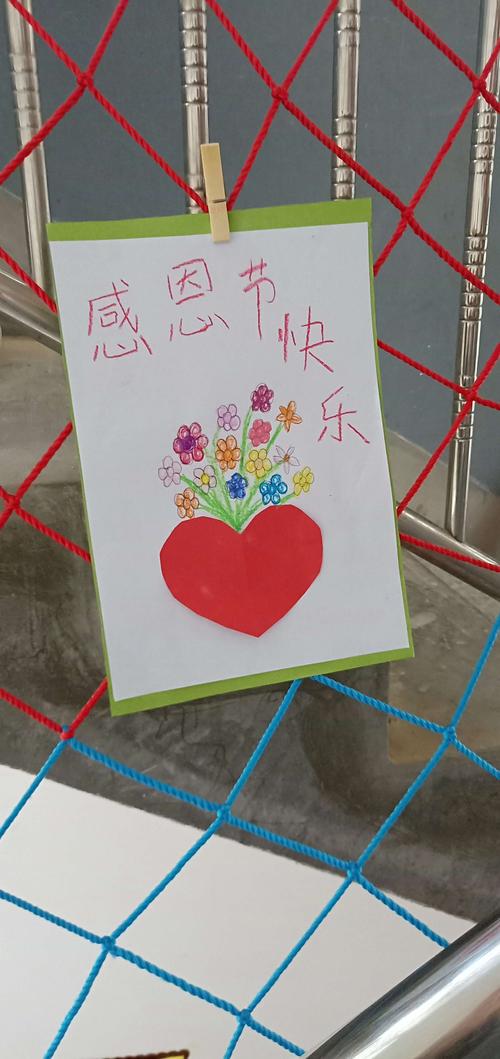 感恩节快乐